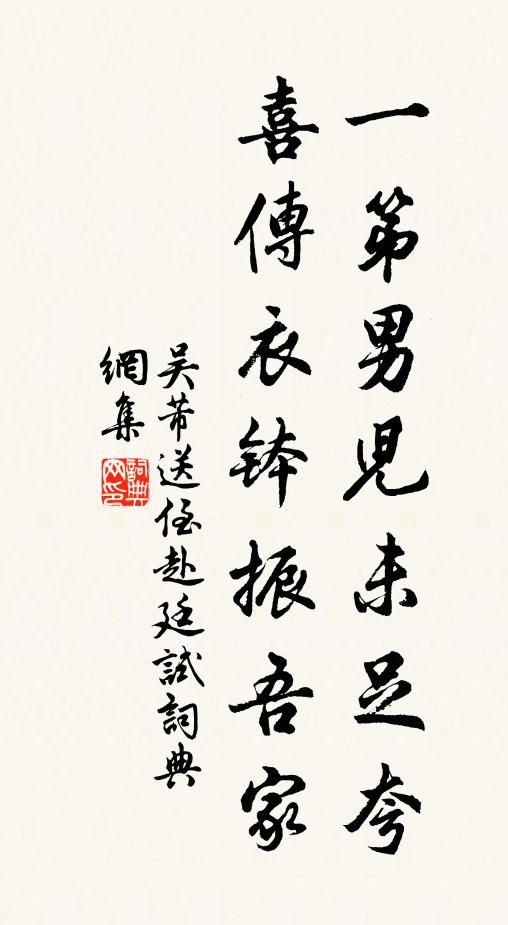 一第男児未足夸
喜傳衣鉢振吾家
吴芾送侄赴廷試詞典
網集
詞典
网印